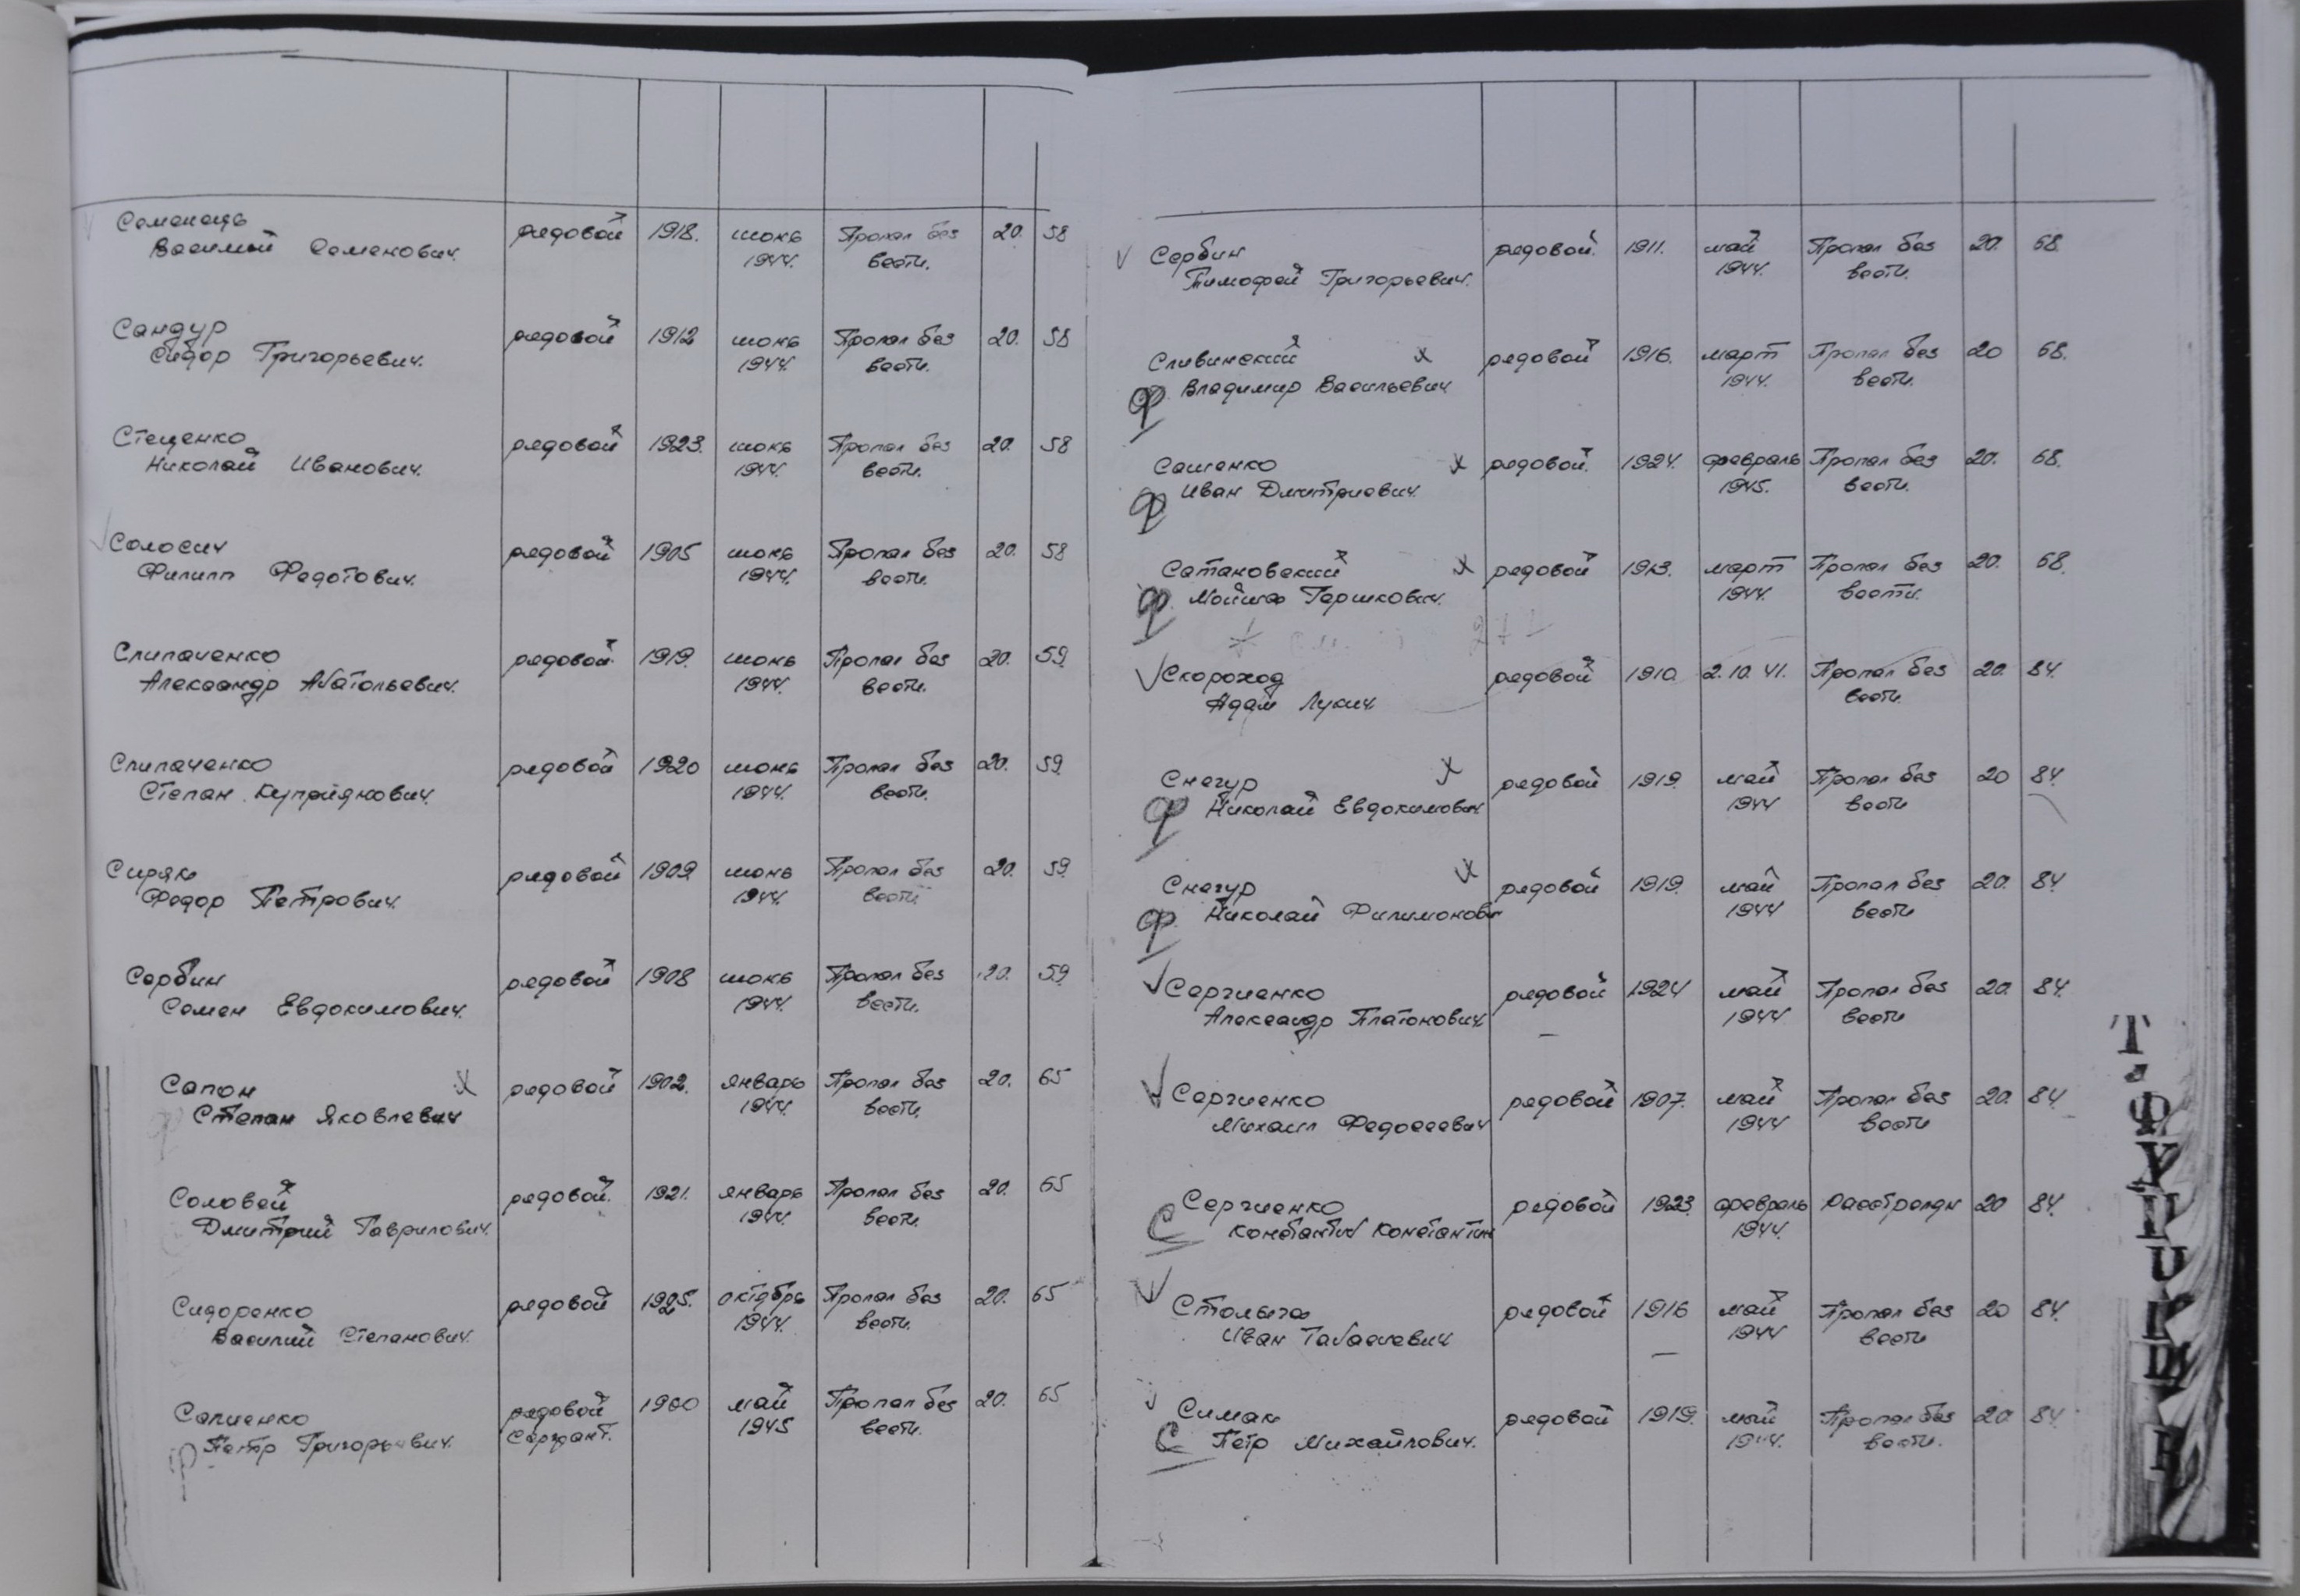 Семенець рядовой 1918. июнь Пропал без 20. 58
Василий Семенович. 1944. вести.
Сандур рядовой 1912 июнь Пропал без 20. 58
Сидор Григорьевич. 1944. вести.
Стеценко рядовой 1923. июнь Пропал без 20. 58
Николай Иванович. 1944. вести.
Солосич рядовой 1905 июнь Пропал без 20. 58
Филипп Федотович. 1944. вести.
Слипаченко рядовой 1919. июнь Пропал без 20. 59.
Александр Анатольевич. 1944. вести.
Слипаченко рядовой 1920 июнь Пропал без 20. 59.
Степан Куприянович. 1944. вести.
Сиряк рядовой 1909 июнь Пропал без 20. 59.
Федор Петрович. 1944. вести
Сербин рядовой 1908 июнь Пропал без 20. 59
Семен Евдокимович. 1944. вести.
Сапон х рядовой 1902. январь Пропал без 20. 65
Степан Яковлевич 1944. вести.
Соловей рядовой. 1921. январь Пропал без 20. 65
Дмитрий Гаврилович. 1944. вести.
Сидоренко рядовой 1925. октябрь Пропал без 20. 65
Василий Степанович. 1944. вести.
Сапиенко рядовой 1900 май Пропал без 20. 65
ф Петр Григорьевич. сержант. 1945 вести.
Сербин рядовой. 1911. май Пропал без 20. 68.
Тимофей Григорьевич. 1944. вести.
Сливинский х рядовой 1916. март Пропал без 20 68.
ф Владимир Васильевич 1944. вести.
Сашенко х рядовой. 1924. февраль Пропал без 20. 68.
ф Иван Дмитриевич. 1945. вести.
Сатановский х рядовой 1913. март Пропал без 20. 68.
ф. Мойше Гершкович. 1944. вести.
Скороход рядовой 1910. 2.10.41. Пропал без 20. 84.
Адам Лукич. вести.
Снегур х рядовой 1919. май Пропал без 20 84.
ф Николай Евдокимович 1944 вести
Снегур х рядовой 1919. май Пропал без 20. 84.
ф. Николай Филимонови 1944 вести
Сергиенко рядовой 1924 май Пропал без 20. 84.
Александр Платонович. 1944 вести
Сергиенко рядовой 1907. май Пропал без 20. 84.
Михаил Федосеевич 1944 вести
Сергиенко рядовой 1923. февраль Расстрелян 20 84.
С Константин Константин 1944.
Столыга рядовой 1916 май Пропал без 20 84.
Иван 1944 вести
Симак рядовой 1919. май Пропал без 20. 84.
С Петр Михайлович. 1944. вести.